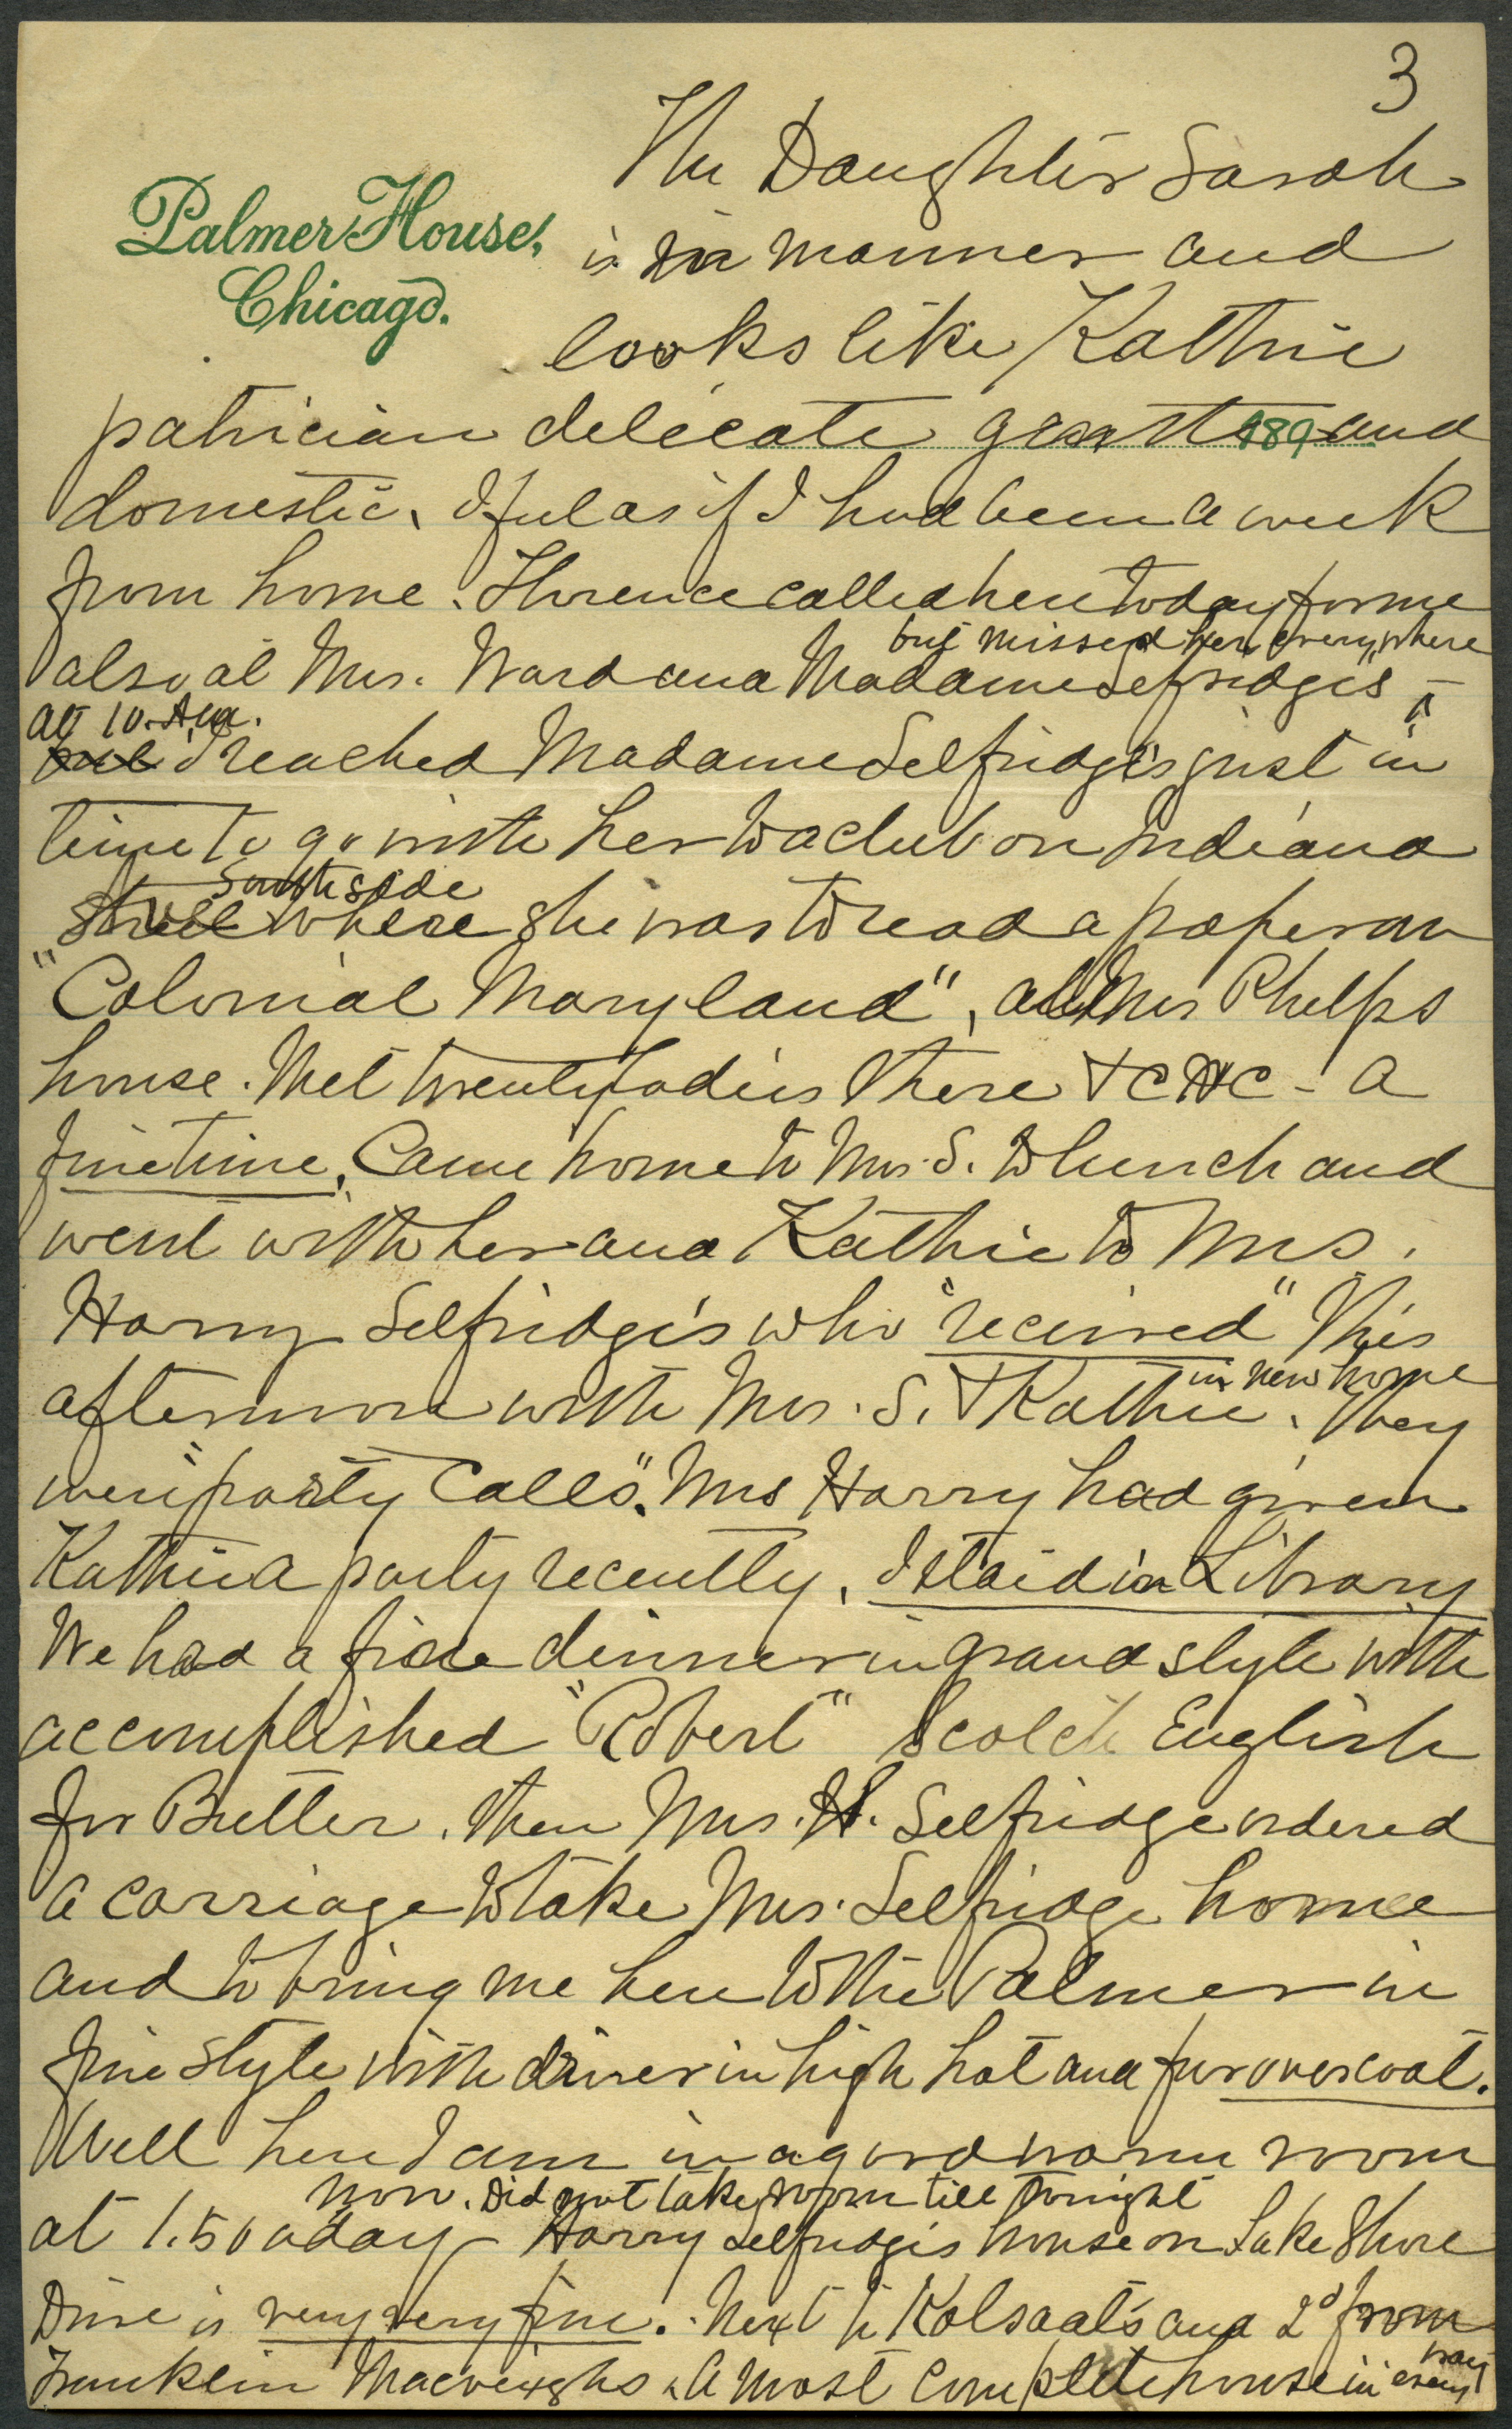 3
Palmer House,
Chicago.
The Daughter Sarah
is in manner and
looks like Kathie
patrician delicate 189 and
domestic. I feel as if I had been a week
from home. Florence called here today for me
but missed her everywhere
also at Mrs. Ward and Madame Selfridge's -
at 10. A.M.
but I reached Madame Selfridge's just in
time to go with her to a club on Indiana
South side
Street where she was to read a paper on
"Colonial Maryland", at Mrs Phelps
house. Met twenty ladies there & C H C - a
fine time. Came home to Mrs. S. to lunch and
went with her and Kathie to Mrs.
Harry Selfridge's who "received" this
in new home
afternoon with Mrs. S. & Kathie. They
were "party calls". Mrs Harry had given
Kathie a party recently. I staid in Library
We had a fine dinner in grand style with
accomplished "Robert" Scotch English
for Butler. Then Mrs. H. Selfridge ordered
a carriage to take Mrs. Selfridge home
and to bring me here to the Palmer in
fine style with driver in high hat and fur overcoat.
Well here I am in a good warm room
now. Did not take room till tonight
at 1.50 a day - Harry Selfridge's house on Lake Shore
Drive is very very fine. Next to Kolsaat's and 2d from
Franklin Macveighs. A most complete house in every
way